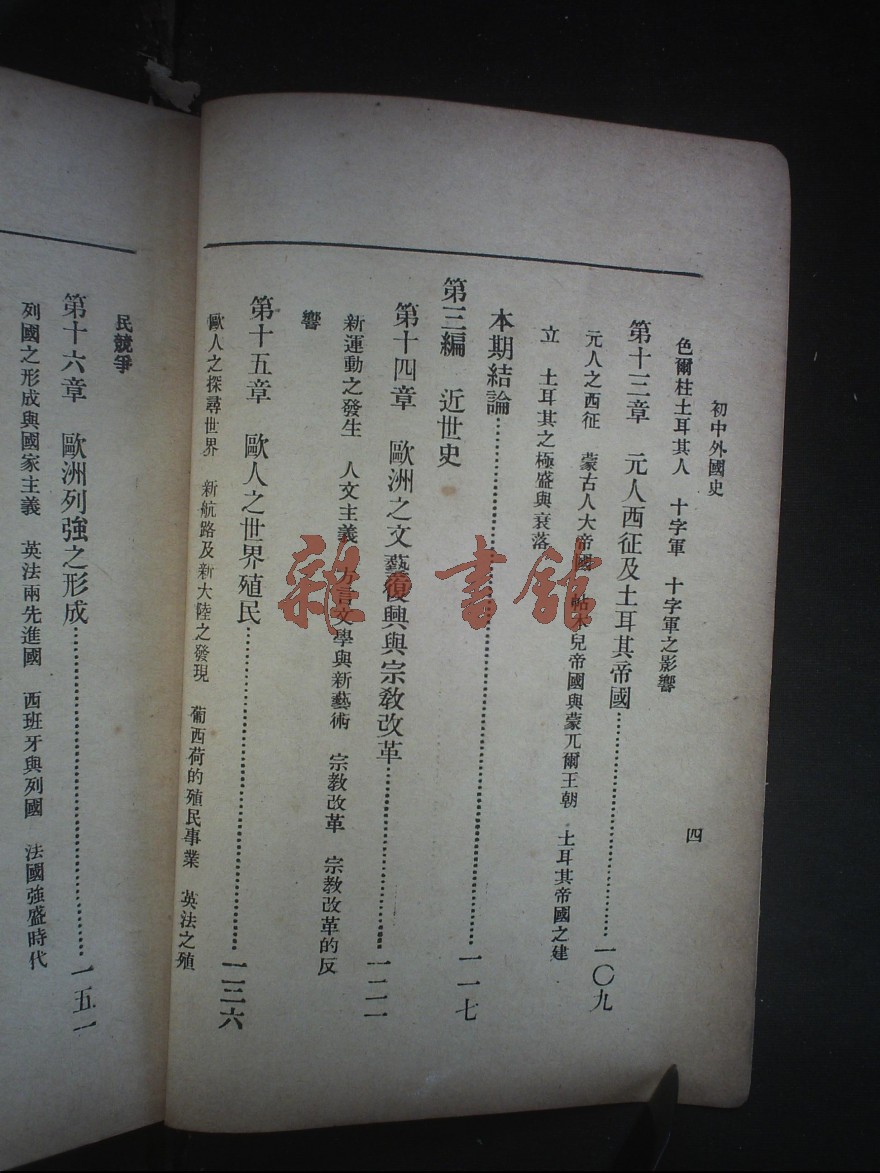 初中外國史
四
色爾柱土耳其人　十字軍　十字軍之影響
第十三章　元人西征及土耳其帝國……一〇九
元人之西征　蒙古人大帝國　帖木兒帝國與蒙兀爾王朝　土耳其帝國之建
立　土耳其之極盛與衰落
本期結論……一一七
第三編　近世史
第十四章　歐洲之文藝復興與宗教改革……一二一
新運動之發生　人文主義　方言文學與新藝術　宗教改革　宗教改革的反
響
第十五章　歐人之世界殖民……一三六
歐人之探尋世界　新航路及新大陸之發現　葡西荷的殖民事業　英法之殖
民競爭
第十六章　歐洲列強之形成……一五一
列國之形成與國家主義　英法兩先進國　西班牙與列國　法國強盛時代
雜·書館